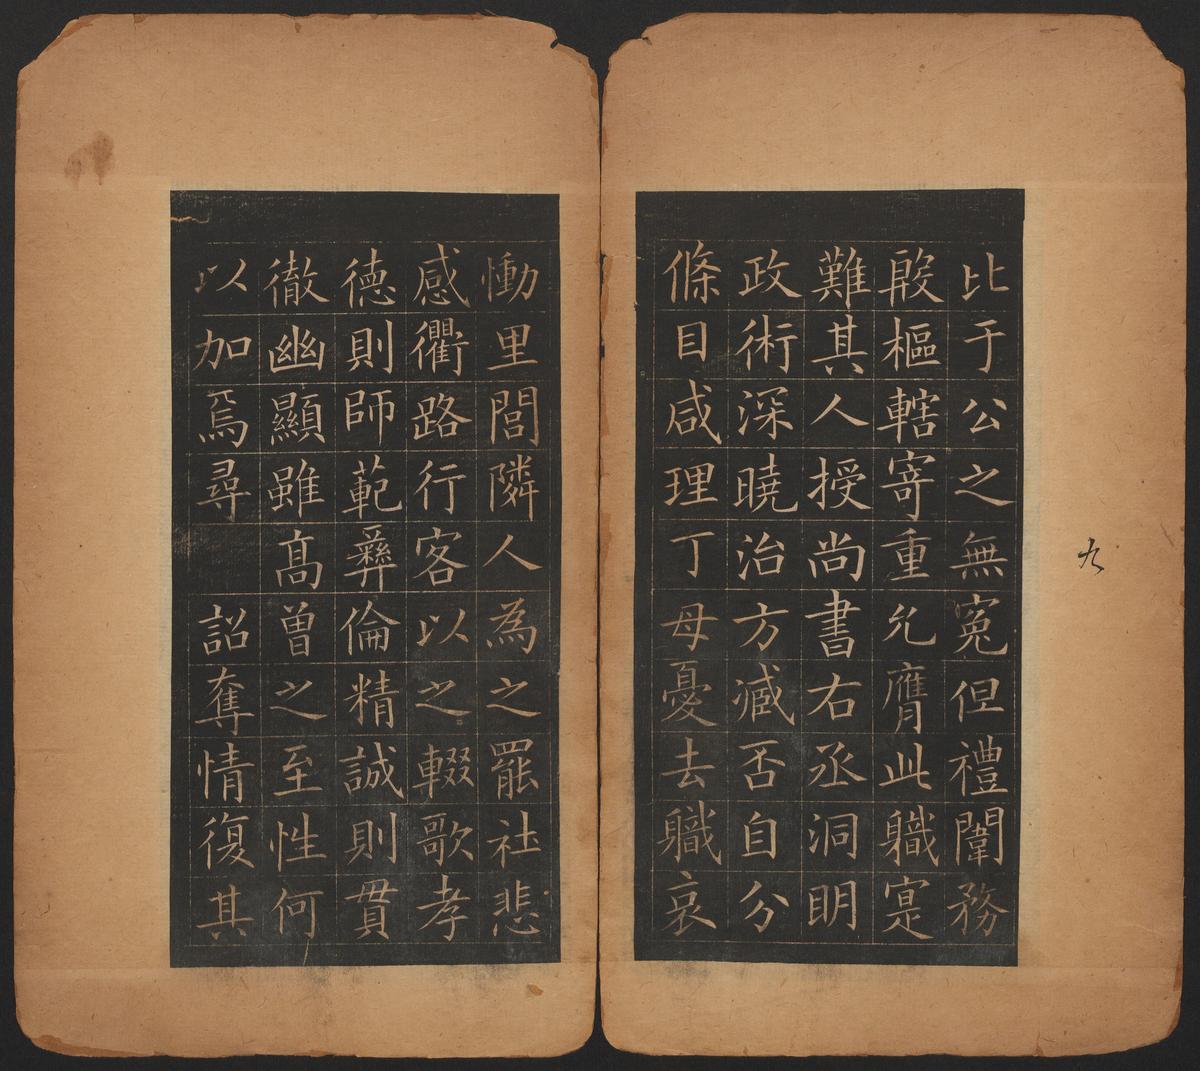 九
比于公之無寃但禮闈務
殷樞轄寄重允膺此職寔
難其人授尚書右丞洞明
政術深曉治方臧否自分
條目咸理丁母憂去職哀
慟里閭隣人為之罷社悲
感衢路行客以之輟歌孝
德則師範彝倫精誠則貫
徹幽顯雖髙曽之至性何
以加焉尋 詔奪情復其